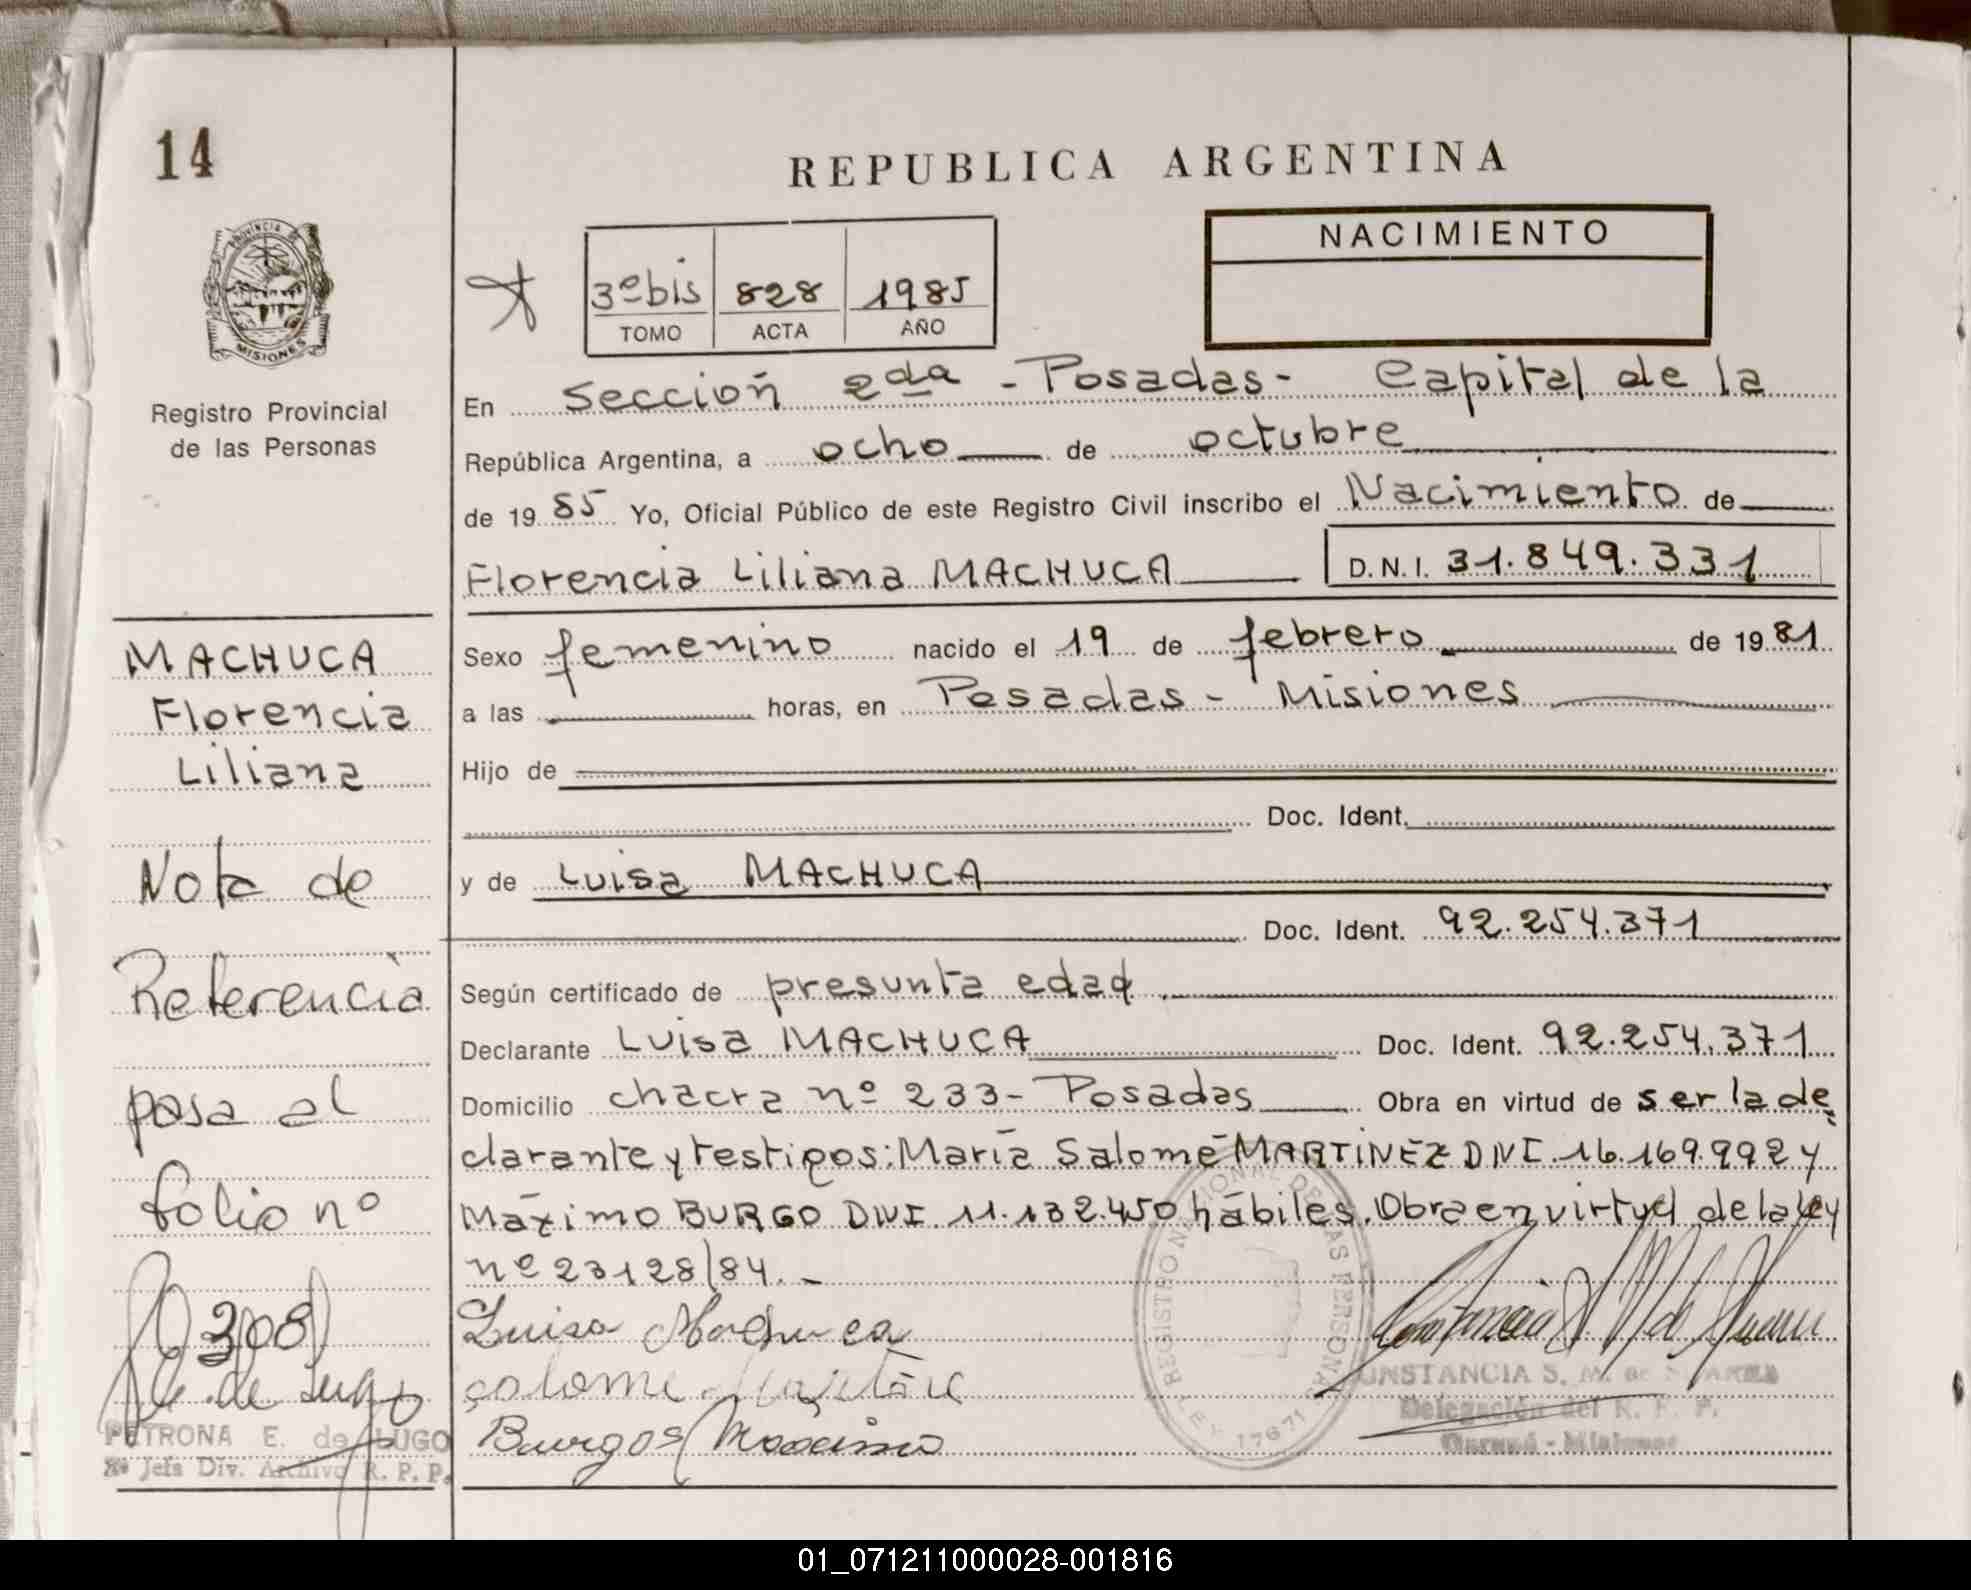 14
REPUBLICA ARGENTINA
PROVINCIA DE
MISIONES
Registro Provincial
de las Personas
3º bis 828 1985
TOMO ACTA AÑO
NACIMIENTO
En Sección 2da - Posadas - Capital de la
República Argentina, a ocho de octubre
de 1985 Yo, Oficial Público de este Registro Civil inscribo el Nacimiento de
Florencia Liliana MACHUCA D.N.I. 31.849.331
Sexo femenino nacido el 19 de febrero de 1981
a las horas, en Posadas - Misiones
Hijo de
Doc. Ident.
y de Luisa MACHUCA
Doc. Ident. 92.254.371
Según certificado de presunta edad
Declarante Luisa MACHUCA Doc. Ident. 92.254.371
Domicilio chacra nº 233 - Posadas Obra en virtud de ser la de
clarante y testigos: María Salomé MARTINEZ DNI 16.169.992 y
Máximo BURGO DNI 11.132.450 hábiles. Obra en virtud de la ley
nº 23128/84. -
Luisa Machuca
Burgos Maximo
MACHUCA
Florencia
Liliana
Nota de
Referencia
pasa al
folio nº
308
de Lugo
PETRONA E. de LUGO
Jefa Div. Archivo R. P. P.
REGISTRO NACIONAL DE LAS PERSONAS
LEY 17671
CONSTANCIA S. M. de
Delegación del R. P. P.
Misiones
01_071211000028-001816